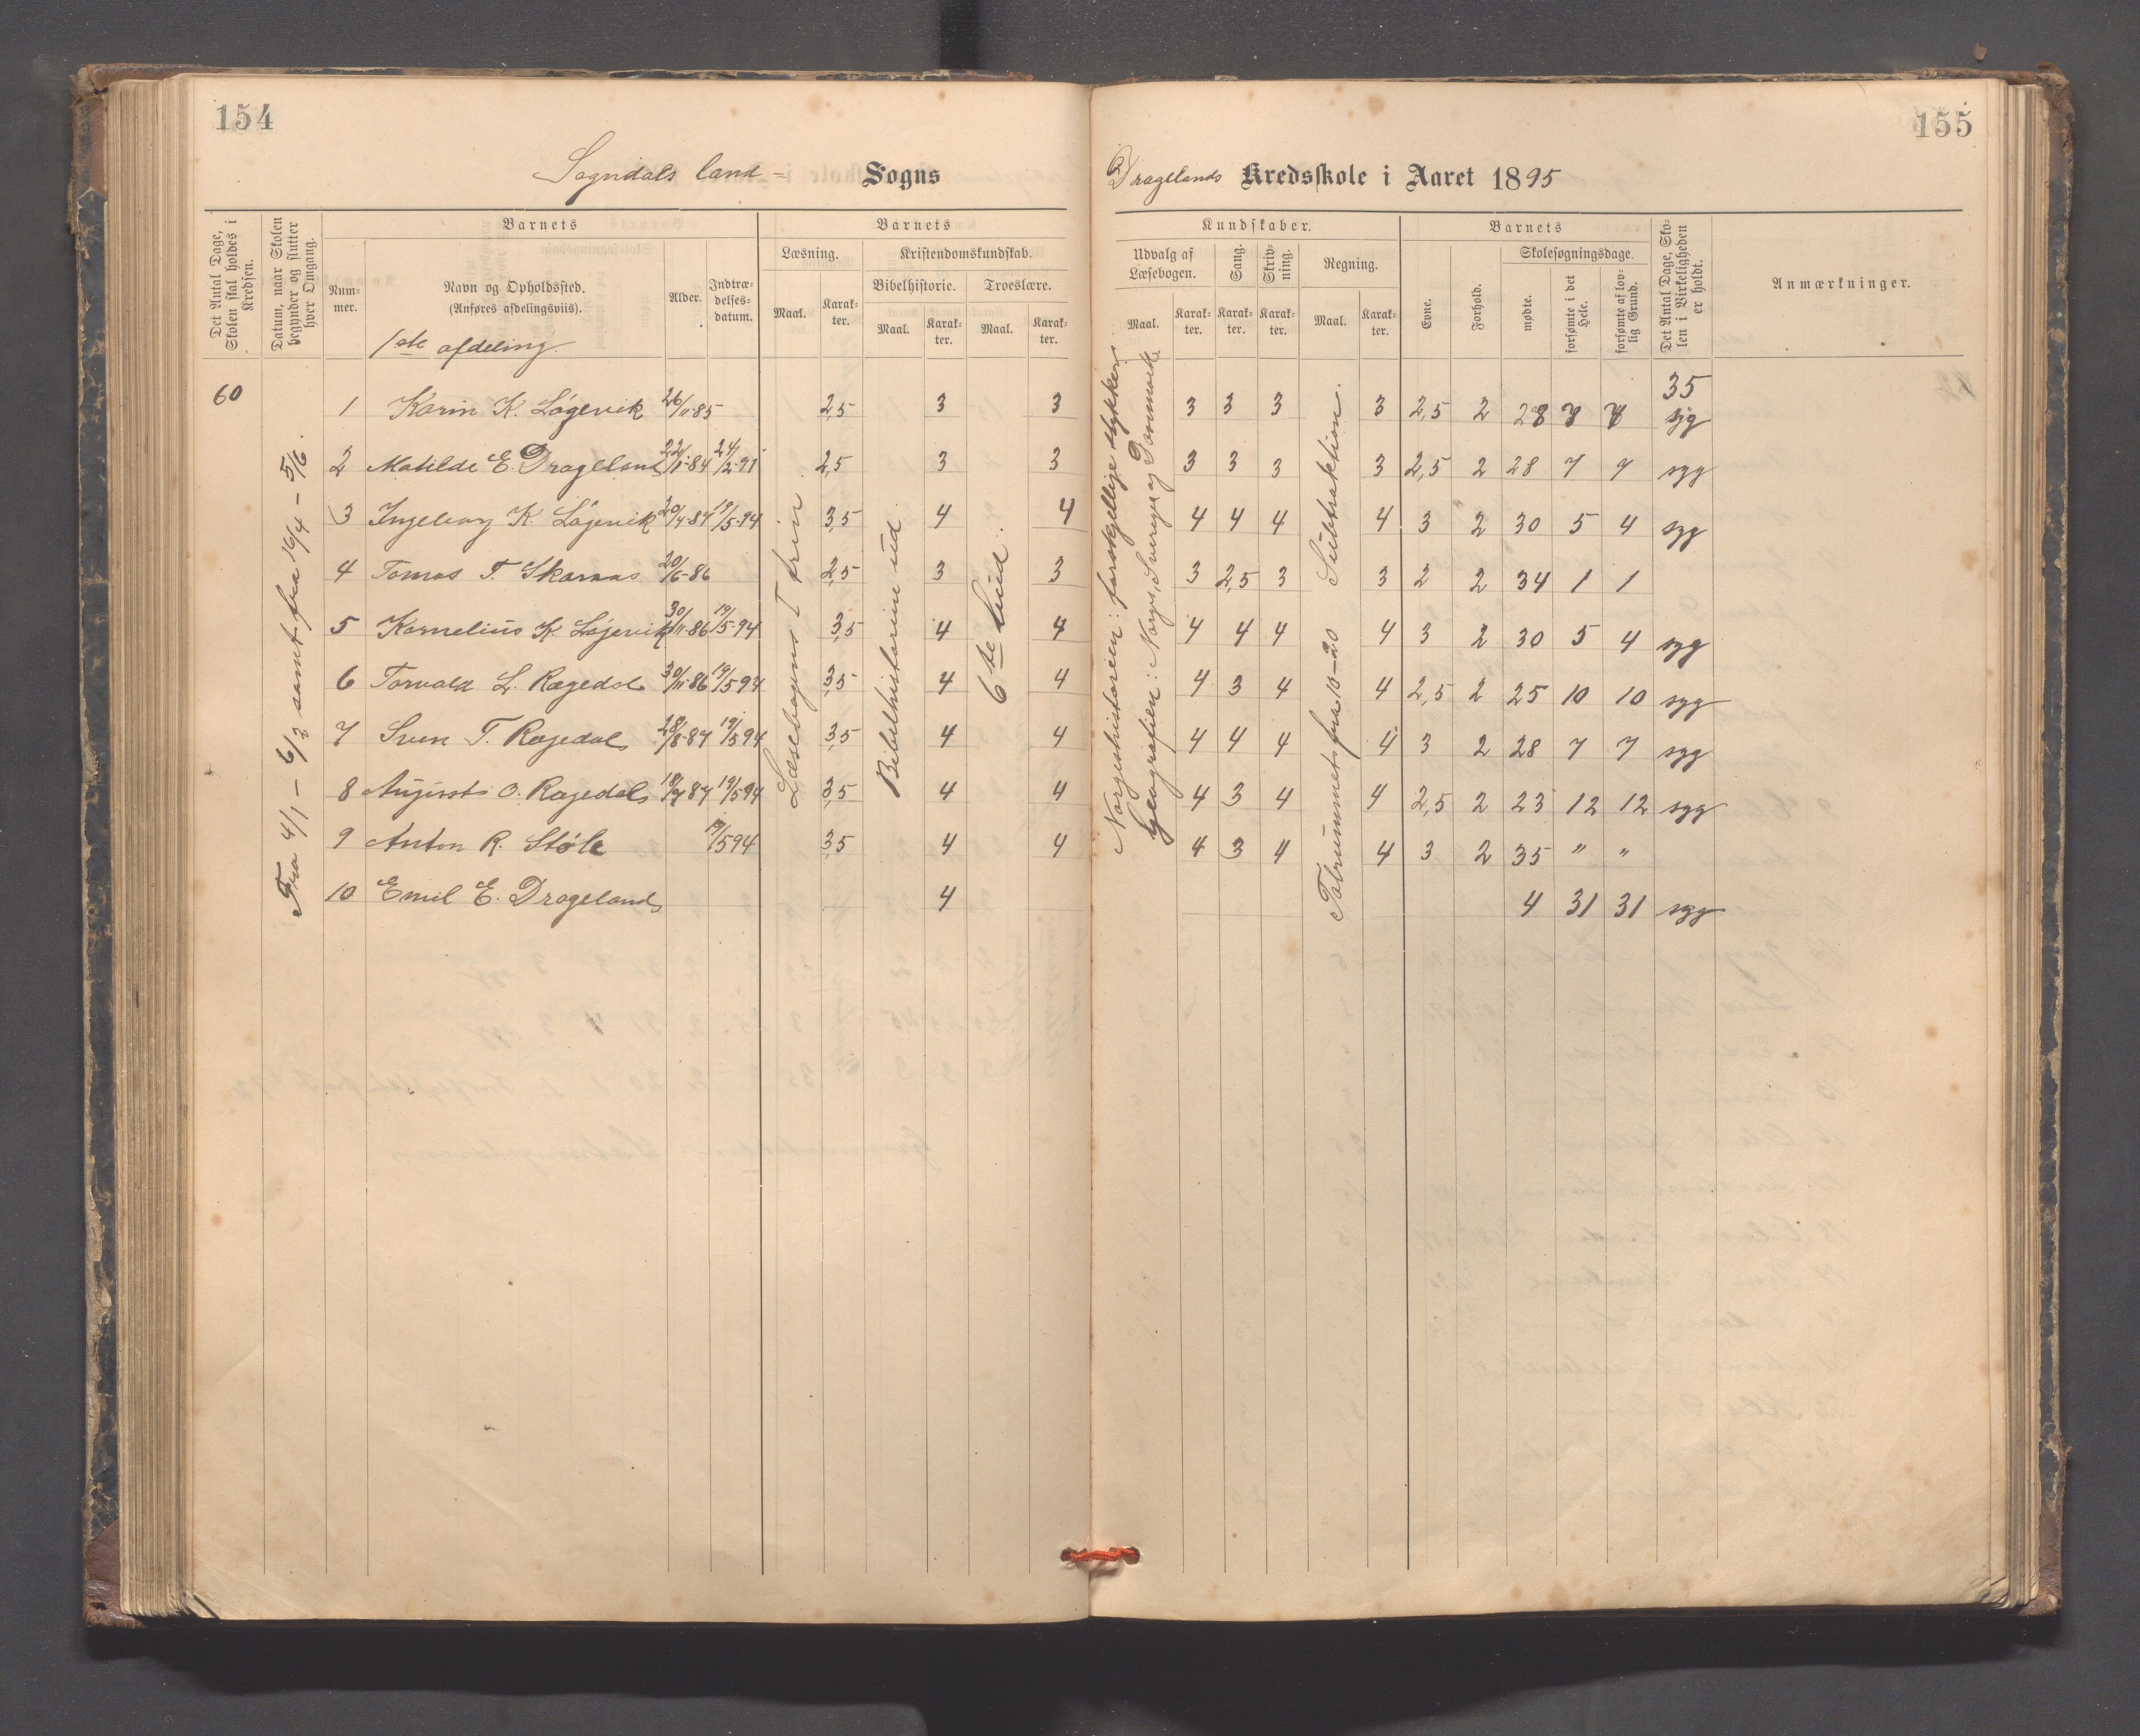 154
155
Sogndals land= Sogns
Dragelands Kredsskole i Aaret 1895
Det Antal Dage, Skolen skal holdes i Kredsen.
Datum, naar Skolen begynder og slutter hver Omgang.
Barnets
Nummer.
Navn og Opholdssted.
(Anføres afdelingsviis).
Alder.
Indtrædelsesdatum.
Barnets
Læsning.
Maal.
Karakter.
Kristendomskundskab.
Bibelhistorie.
Maal.
Karakter.
Troeslære.
Maal.
Karakter.
Kundskaber.
Udvalg af Læsebogen.
Maal.
Karakter.
Sang.
Karakter.
Skrivning.
Karakter.
Regning.
Maal.
Karakter.
Barnets
Evne.
Forhold.
Skolesøgningsdage.
mødte.
forsømte i det Hele.
forsømte af lovlig Grund.
Det Antal Dage, Skolen i Virkeligheden er holdt.
Anmærkninger.
1ste afdeling.
60
Fra 4/1 – 6/2 samt fra 16/4 – 5/6.
Læsebogens I trin.
Bibelhistorien ud.
6te bud.
Norgeshistorien: forskjellige stykker.
Geografien: Norge, Sverige og Danmark.
Talrummet fra 10–20 Subtraktion.
35
1 Karin K. Løgevik 26/11-85 2,5 3 3 3 3 3 3 2,5 2 28 7 7 syg
2 Matilde E. Drageland 22/1-84 24/2-91 2,5 3 3 3 3 3 3 2,5 2 28 7 7 syg
3 Ingeborg K. Løgevik 20/4-87 19/5-94 3,5 4 4 4 4 4 4 3 2 30 5 4 syg
4 Tomas T. Skaraas 20/6-86 2,5 3 3 3 2,5 3 3 2 2 34 1 1
5 Kornelius K. Løgevik 30/11-86 19/5-94 3,5 4 4 4 4 4 4 3 2 30 5 4 syg
6 Torvald L. Rægedal 30/11-86 19/5 94 3,5 4 4 4 3 4 4 2,5 2 25 10 10 syg
7 Sven T. Rægedal 28/8-87 19/5 94 3,5 4 4 4 4 4 4 3 2 28 7 7 syg
8 August O. Rægedal 18/7 87 19/5 94 3,5 4 4 4 3 4 4 2,5 2 23 12 12 syg
9 Anton R. Støle 19/5 94 3,5 4 4 4 3 4 4 3 2 35 " "
10 Emil E. Drageland 4 4 31 31 syg